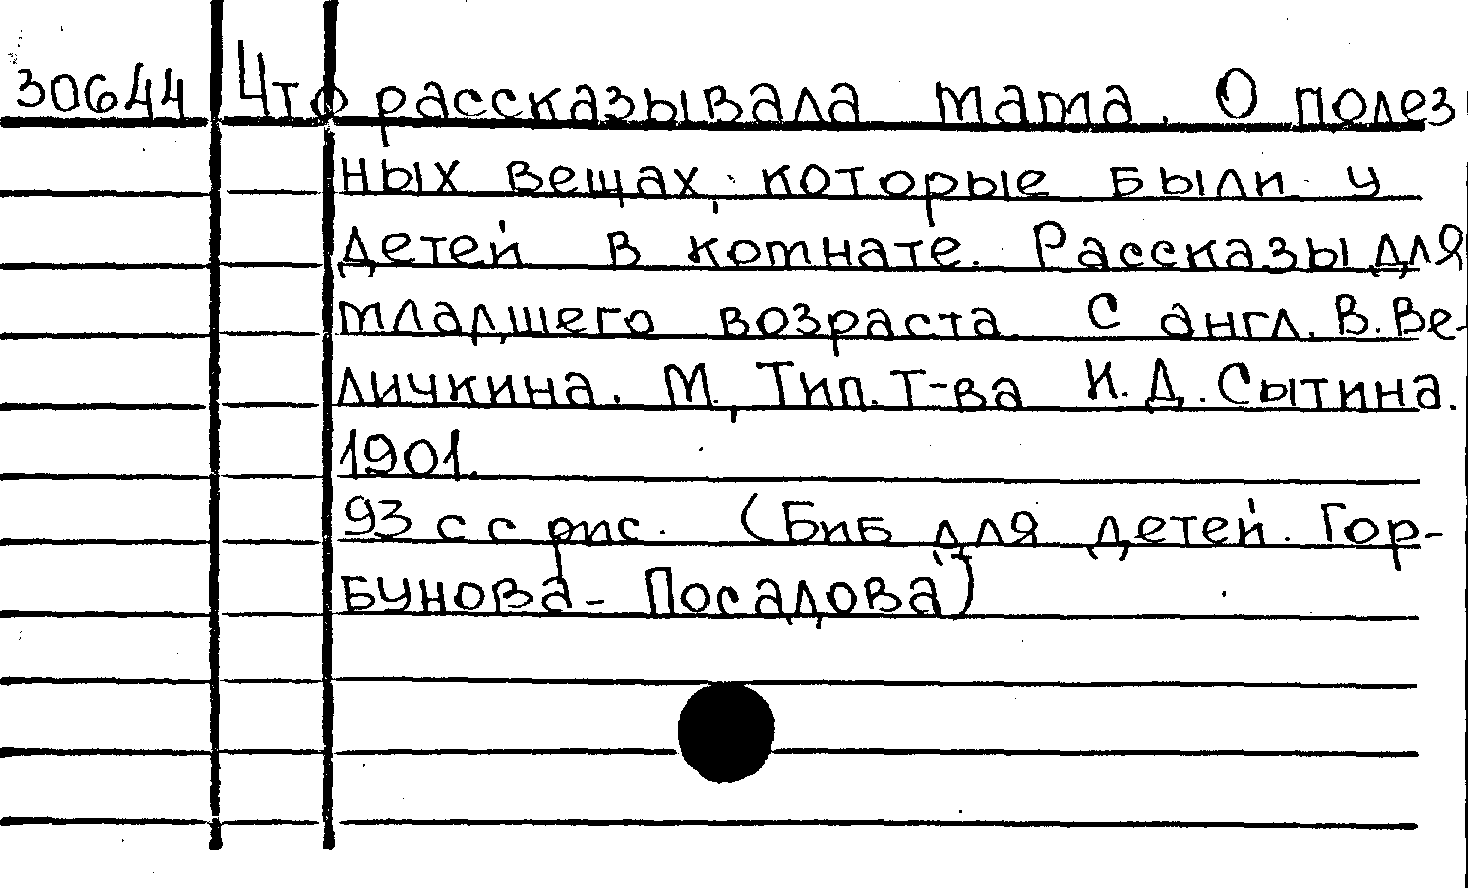 30644 Что рассказывала мама. О полез
ных вещах, которые были у
детей в комнате. Рассказы для
младшего возраста С англ. В. Ве-
личкина. М., Тип. Т-ва И. Д. Сытина.
1901.
93 с с рис. (Биб для детей. Гор-
бунова- Посадова)